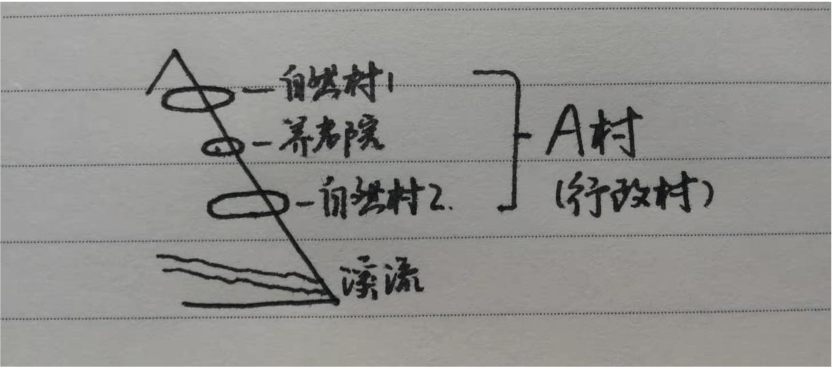 自然村1
养老院
自然村2.
A村
(行政村)
溪流